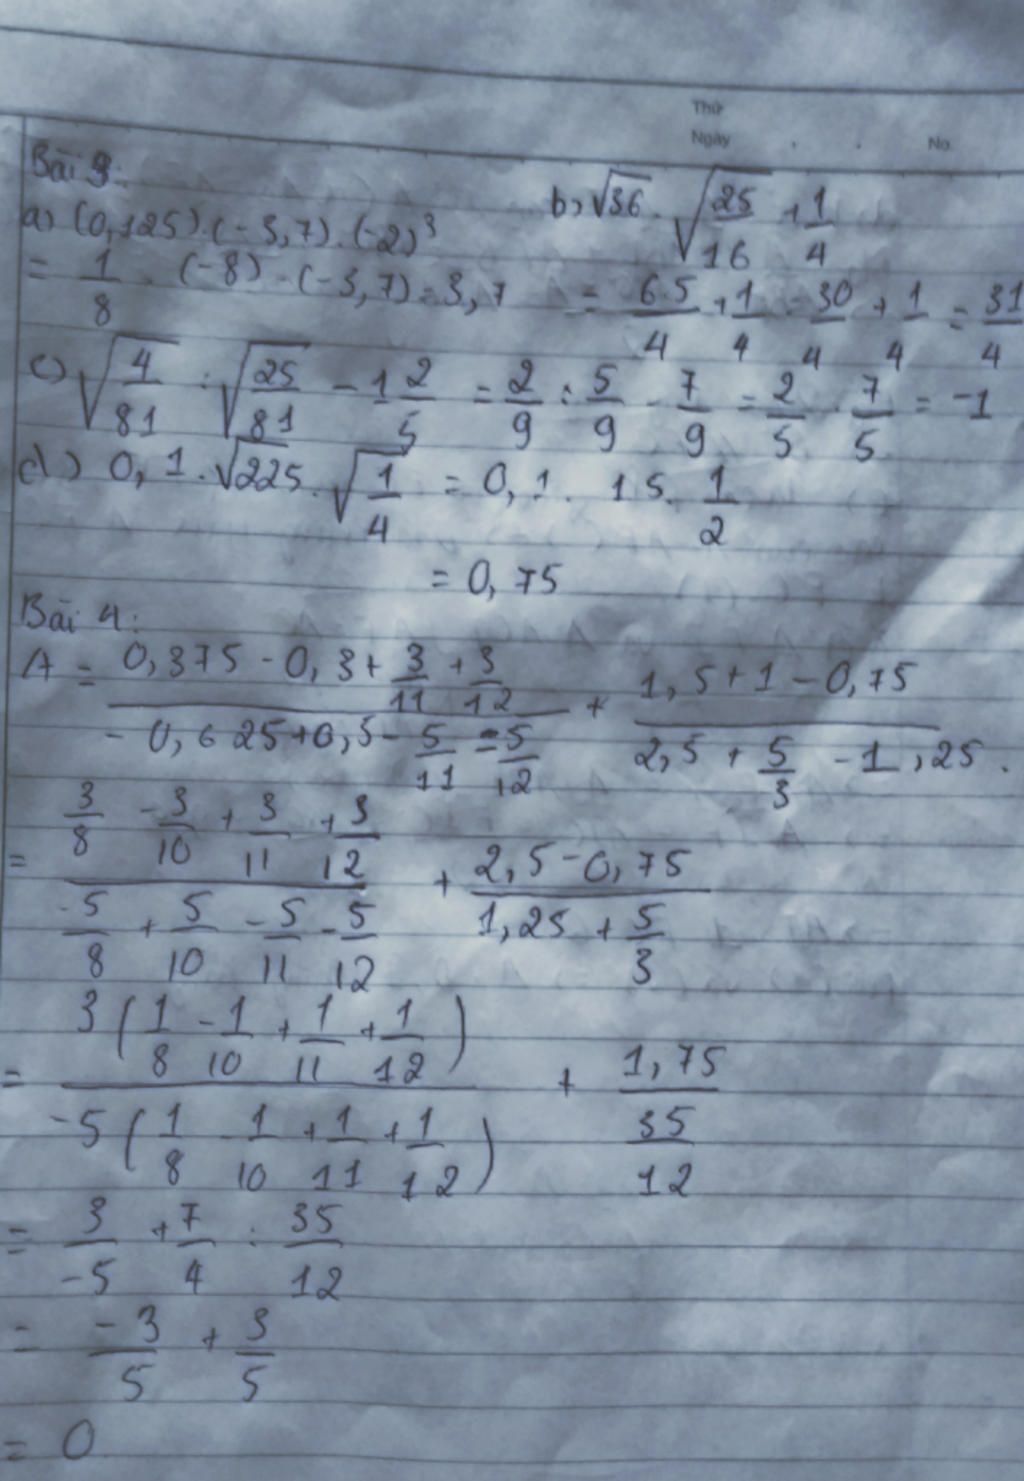 Thứ
Ngày . . No.
Bài 3:
a) (0,125).(-3,7).(-2)³
b) √36 . √(25/16) + 1/4
= 1/8 . (-8) . (-3,7) = 3,7
= 6.5/4 + 1/4 = 30/4 + 1/4 = 31/4
c) √(4/81) : √(25/81) - 1 2/5 = 2/9 : 5/9 - 7/9 = 2/5 - 7/5 = -1
d) 0,1.√225.√(1/4) = 0,1. 15. 1/2
= 0,75
Bài 4:
A = (0,375 - 0,3 + 3/11 + 3/12)/(-0,625 + 0,5 - 5/11 - 5/12) + (1,5 + 1 - 0,75)/(2,5 + 5/3 - 1,25).
= (3/8 - 3/10 + 3/11 + 3/12)/(-5/8 + 5/10 - 5/11 - 5/12) + (2,5 - 0,75)/(1,25 + 5/3)
= 3(1/8 - 1/10 + 1/11 + 1/12)/-5(1/8 - 1/10 + 1/11 + 1/12) + 1,75/(35/12)
= 3/-5 + 7/4 : 35/12
= -3/5 + 3/5
= 0